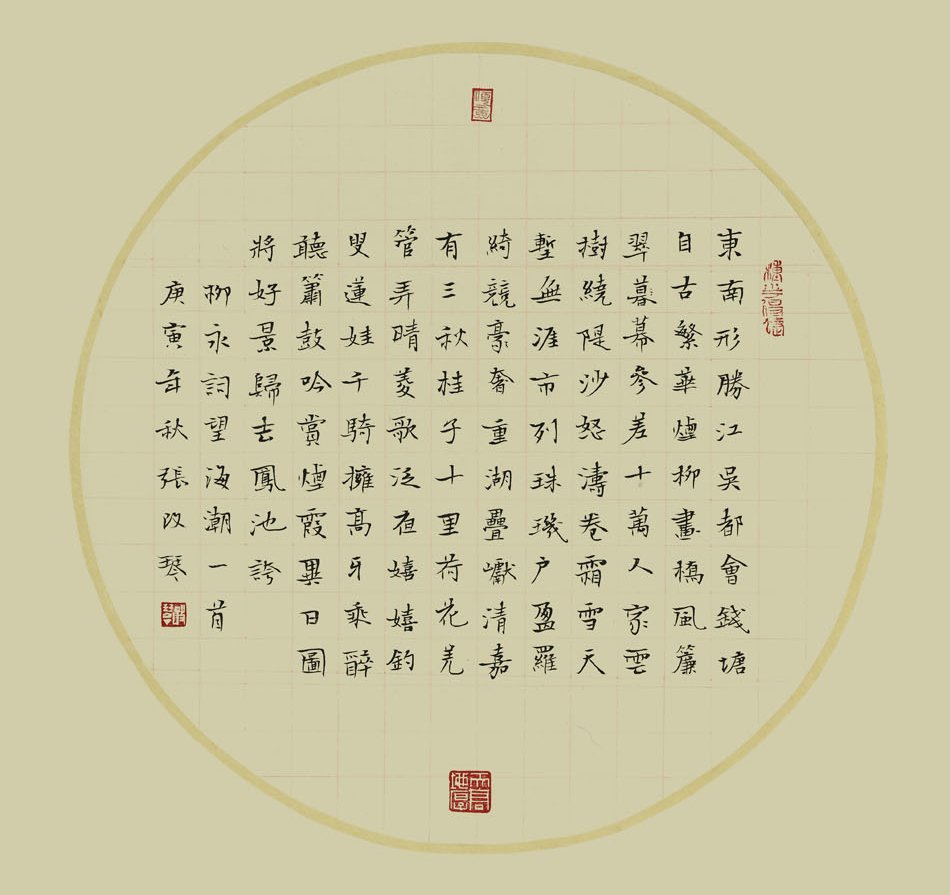 東南形勝江吳都會錢塘
自古繁華煙柳畫橋風簾
翠暮幕參差十萬人家雲
樹繞隄沙怒濤卷霜雪天
塹無涯市列珠璣戶盈羅
綺競豪奢重湖疊巘清嘉
有三秋桂子十里荷花羌
管弄晴菱歌泛夜嬉嬉釣
叟蓮娃千騎擁高牙乘醉
聽簫鼓吟賞煙霞異日圖
將好景歸去鳳池誇
柳永詞望海潮一首
庚寅年秋張改琴